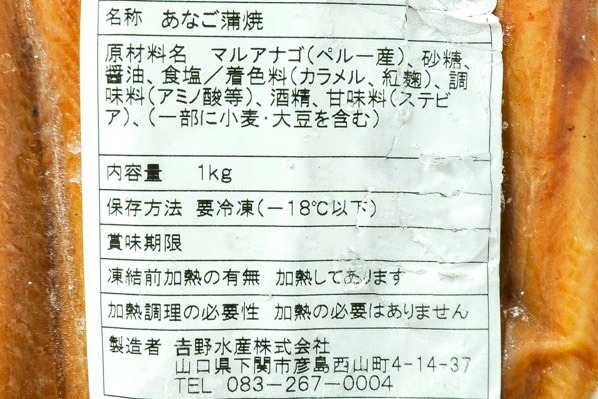 名称 あなご蒲焼
原材料名 マルアナゴ(ペルー産)、砂糖、
醤油、食塩／着色料(カラメル、紅麹)、調
味料(アミノ酸等)、酒精、甘味料(ステビ
ア)、(一部に小麦・大豆を含む)
内容量 1kg
保存方法 要冷凍(－18℃以下)
賞味期限
凍結前加熱の有無 加熱してあります
加熱調理の必要性 加熱の必要はありません
製造者 𠮷野水産株式会社
山口県下関市彦島西山町4-14-37
TEL 083-267-0004